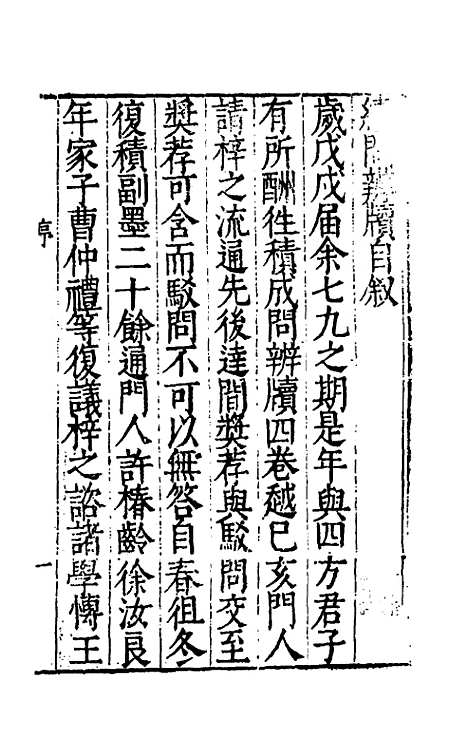 續問辨牘自敘
歲戊戌届余七九之期是年與四方君子
有所酬徃積成問辨牘四卷越巳亥門人
請梓之流通先後達間奬荐與駁問交至
奬荐可含而駁問不可以無答自春徂冬
復積副墨二十餘通門人許椿齡徐汝良
年家子曹仲禮等復議梓之諮諸學慱王
序
一